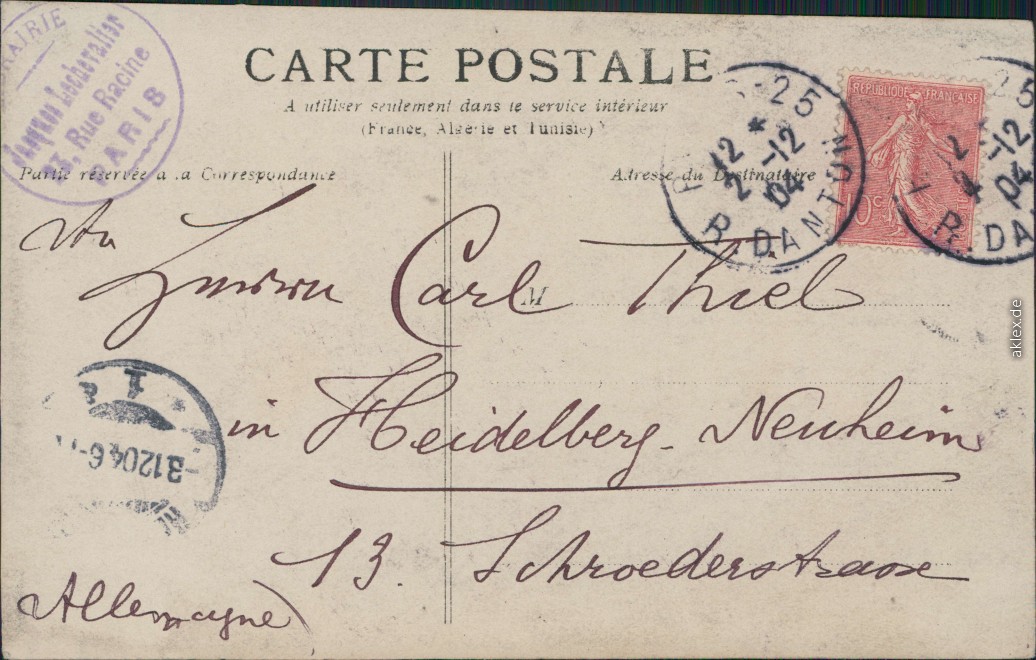 CARTE POSTALE
A utiliser seulement dans le service intérieur
(France, Algérie et Tunisie)
Partie réservée à la Correspondance
Adresse du Destinataire
Lechevalier
23, Rue Racine
PARIS
25
12 *
2 -12
04
R. DANTON
REPUBLIQUE FRANÇAISE
10 c
25
2 -12
04
R. DA
An
Herrn Carl Thiel
M
in Heidelberg-Neuheim
13. Schroederstrasse
Allemagne
1
-3.12.04.6-
aklex.de